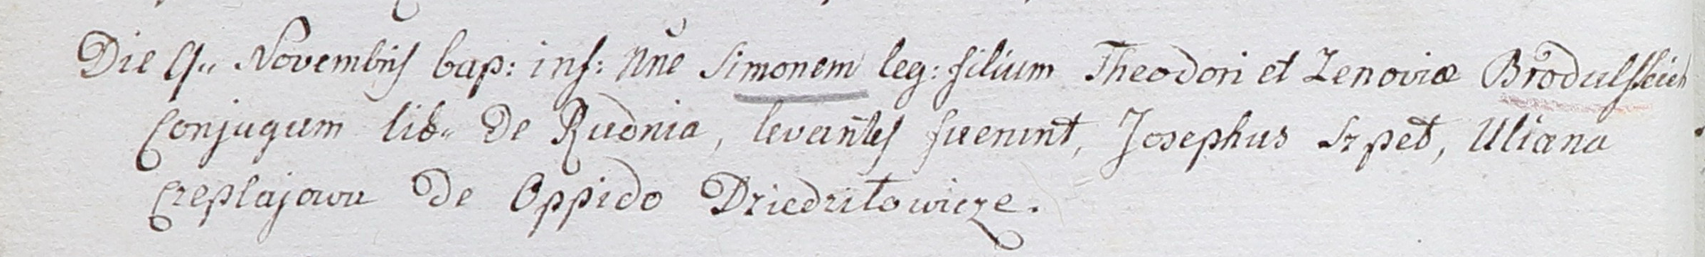 Die 9.. Novembris bap: inf: nne Simonem leg: filium Theodori et Zenoviæ Brodulskich
Conjugum lib.. de Rudnia, levantes fuerunt, Josephus Szpet, Uliana
Czeplajowa de Oppido Dziedziłowicze.